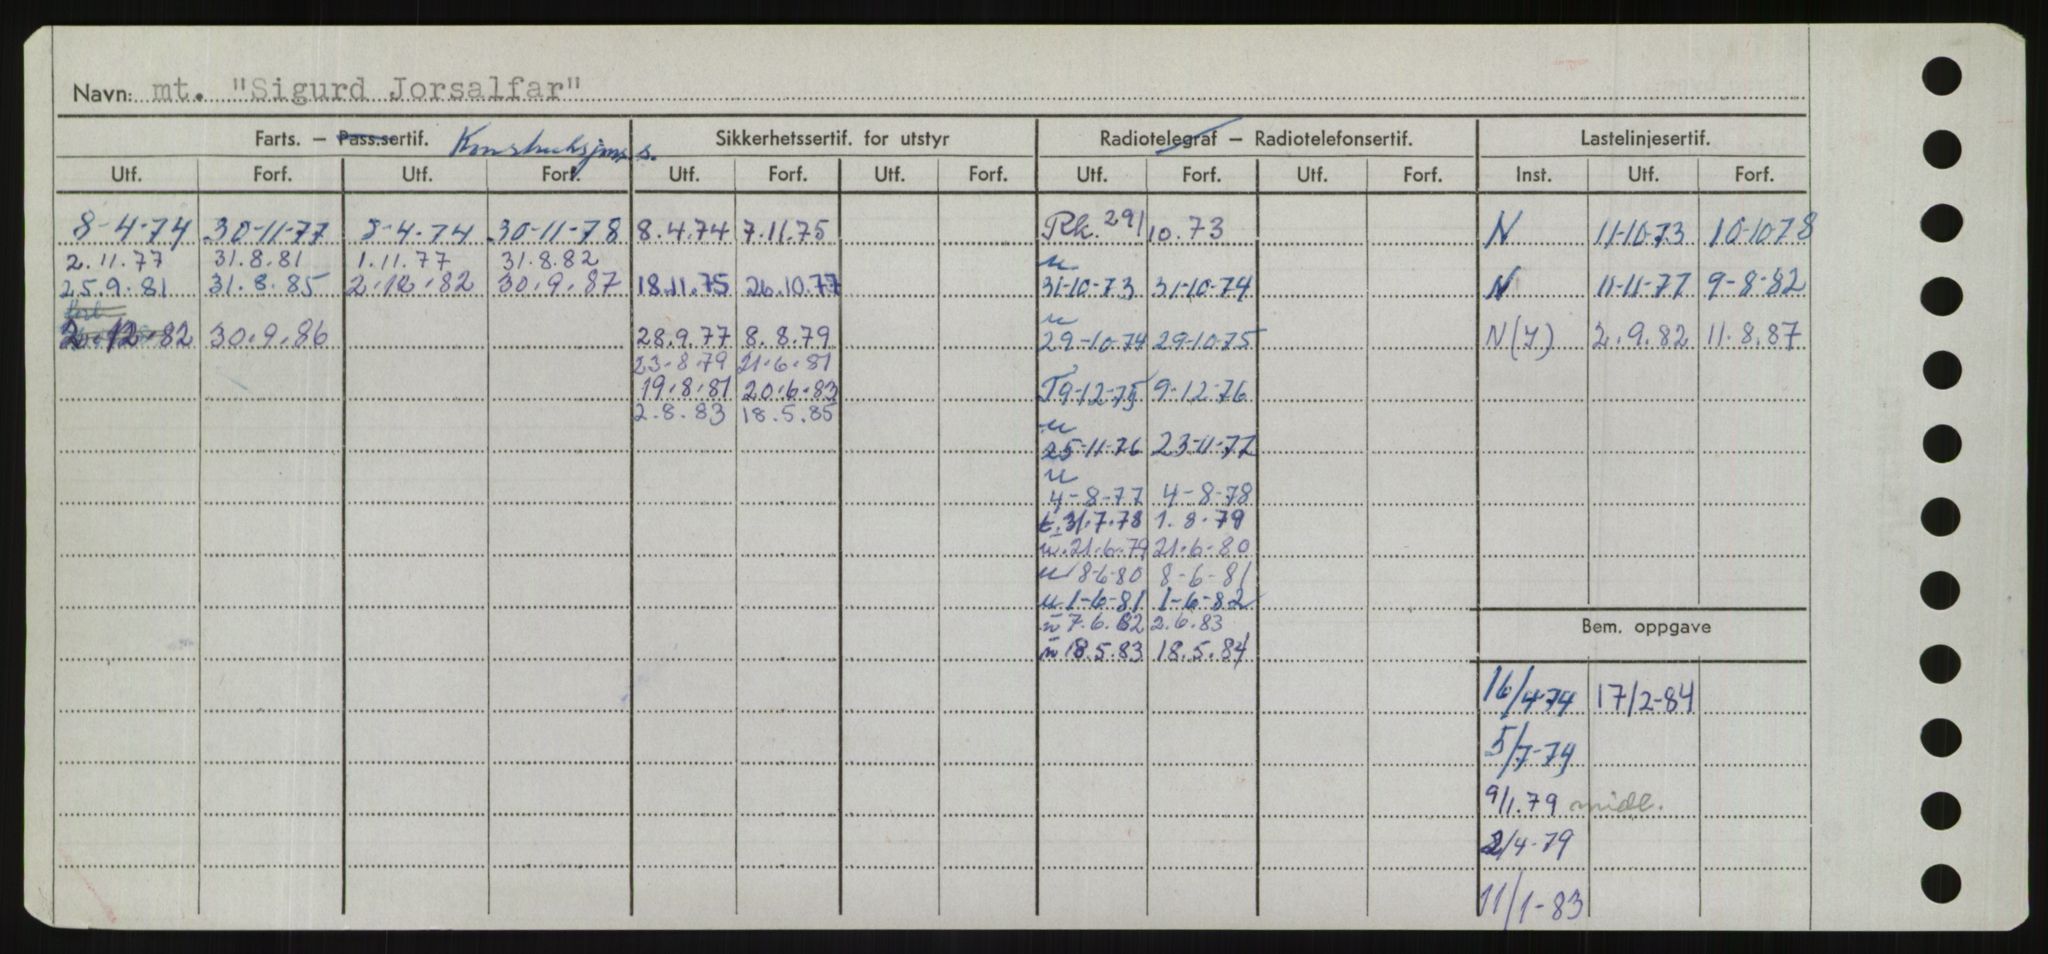 Navn: mt. "Sigurd Jorsalfar"
Farts. — Pass.sertif. Konstruksjons.s. Sikkerhetssertif. for utstyr Radiotelegraf — Radiotelefonsertif. Lastelinjesertif.
Utf. Forf. Utf. Forf. Utf. Forf. Utf. Forf. Utf. Forf. Utf. Forf. Inst. Utf. Forf.
8-4-74 30-11-77 8-4-74 30-11-78 8.4.74 7.11.75 Pk. 29/10.73 N 11-10-73 10-10-78
2.11.77 31.8.81 1.11.77 31.8.82 u
25.9.81 31.8.85 2.12.82 30.9.87 18.11.75 26.10.77 31-10-73 31-10-74 N 11-11-77 9-8-82
u
2.12.82 30.9.86 28.9.77 8.8.79 29-10-74 29-10-75 N(Y) 2.9.82 11.8.87
23.8.79 21.6.81
19.8.81 20.6.83 T9-12-75 9-12-76
2.8.83 18.5.85 u
25-11-76 23-11-77
u
4-8-77 4-8-78
t.31.7.78 1.8.79
u.21.6.79 21.6.80
u 8-6-80 8-6-81
u 1-6-81 1-6-82
u 7.6.82 2.6.83
Bem. oppgave
u 18.5.83 18.5.84
16/4-74 17/2-84
5/7-79
9/1.79 midl.
2/4-79
11/1-83